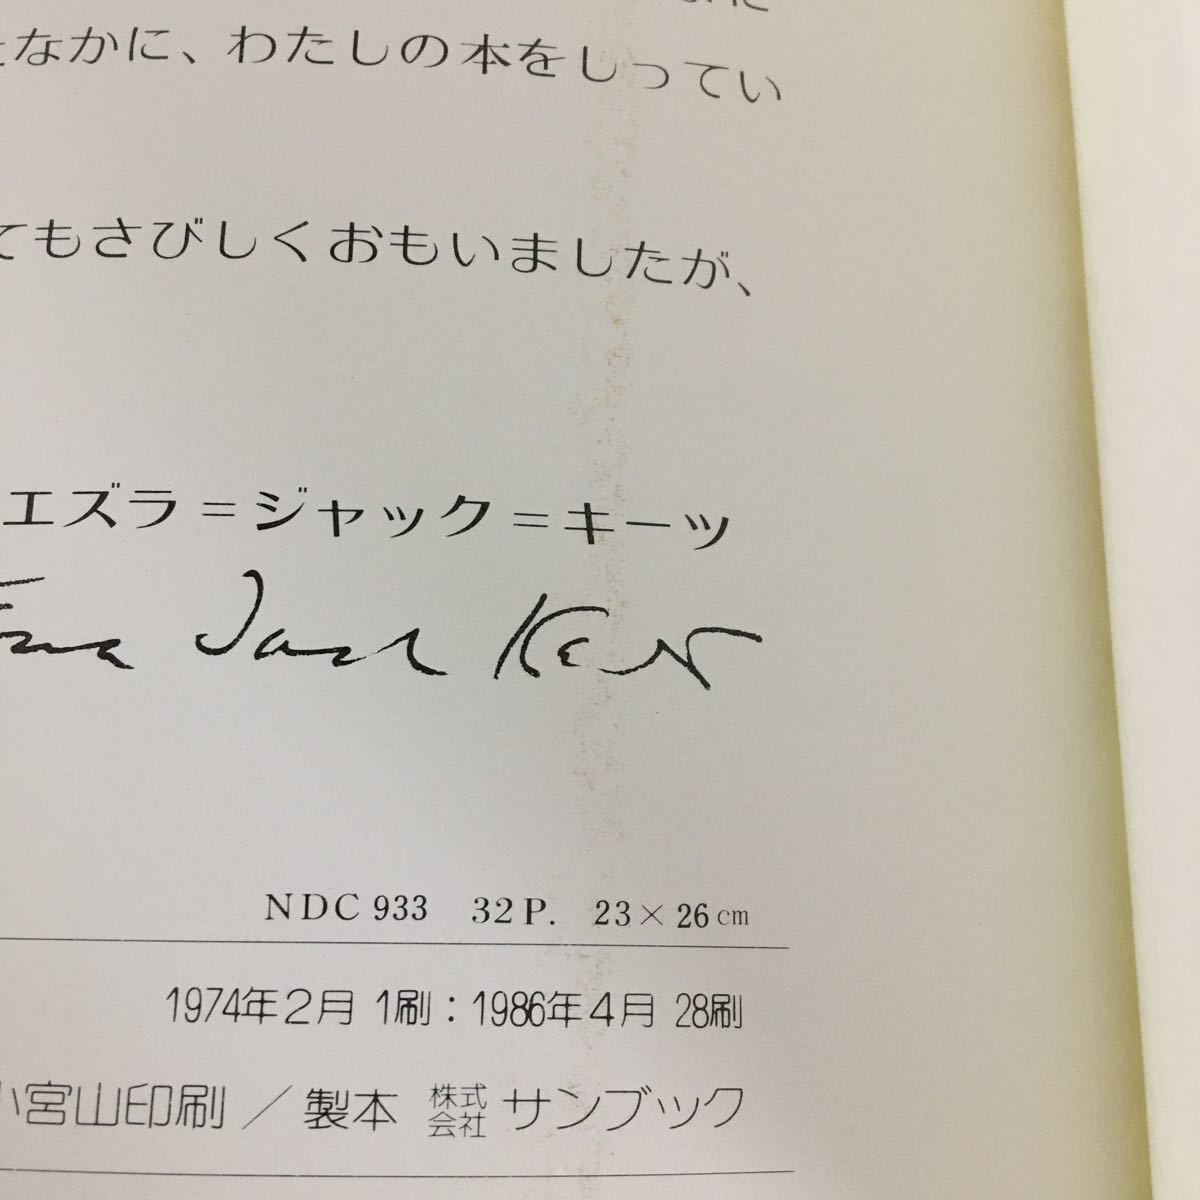 なかに、わたしの本をしってい
てもさびしくおもいましたが、
エズラ=ジャック=キーツ
Ezra Jack Keats
NDC 933 32P. 23×26cm
1974年2月 1刷：1986年4月 28刷
小宮山印刷／製本 株式会社 サンブック